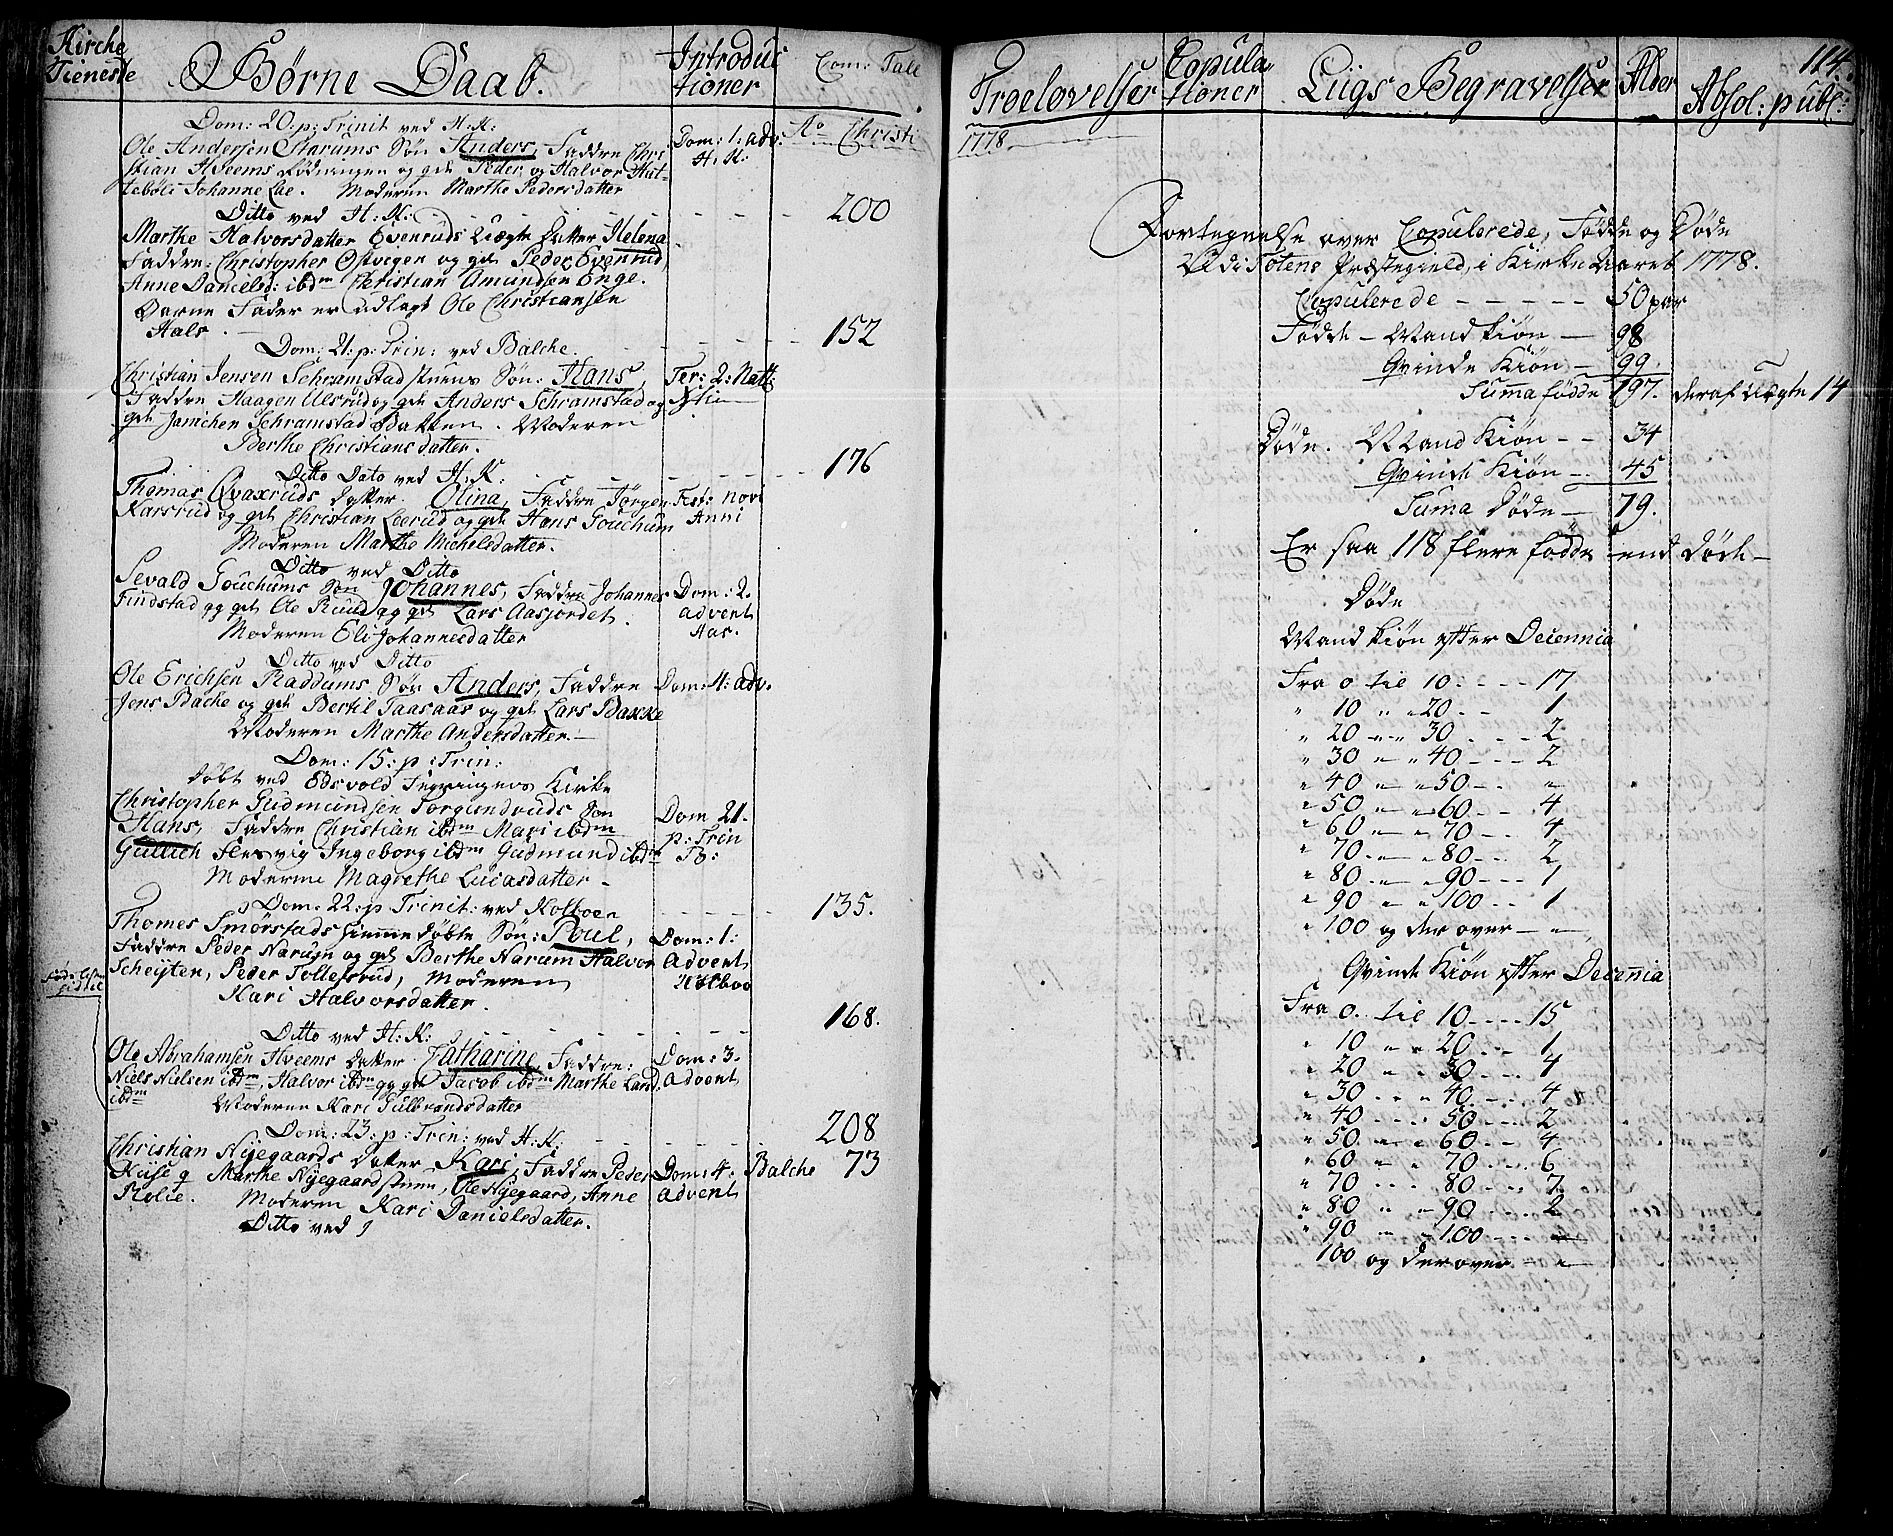 Kirche
Tieneste
Børne Daab.
Introduc
tioner
Com: Tall
Dom: 20. p: Trinit ved H: K:
Ole Andersen Starums Søn Anders, Faddre Chri-
stian Hveems og get Peder og Halvor
Johanne Lie. Moderen Marthe Pedersdatter
Dom: 1: adv:
H: K:
Ao Christi
Ditto ved H: K: 200
Marthe Halvorsdatter Evenruds Uægte Datter Helena
Faddre: Christopher Østvegen og get Peder Evenrud,
Anne Danielsd: ibdm Christian Amundsen Enge.
Barne Fader er udlagt Ole Christiansen
Hals.
Dom: 21. p: Trin: ved Balche. 152
Christian Jensen Schramstadstuens Søn: Hans,
Faddre Haagen Ulsrud og get Anders Schramstad og
get Jamchen Schramstad Moderen
Berthe Christiansdatter.
Fer: 2: Nati
Ditto Dato ved H: K: 176
Thomas Qvaxruds datter. Olina, Faddre Jørgen
Karsrud og get Christian Leerud og get Hans Touchum
Moderen Marthe Michelsdatter.
Fest: novi
Anni
Ditto ved Ditto
Sevald Touchums Søn Johannes, Faddre Johannes
Findstad og get Ole Ruud og get Lars Aasjordet.
Moderen Eli Johannesdatter
Dom: 2.
advent
Aas.
Ditto ved Ditto
Ole Erichsen Raddums Søn Anders, Faddre
Jens Bache og get Bertil Taasaas og get Lars Baxke
Moderen Marthe Andersdatter.
Dom: 4: adv.
Dom: 15: p: Trin:
døbt ved Edsvold Kirke
Christopher Gudmundsen Torgundruds Søn
Hans, Faddre Christian ibdm Mari ibdm
Gullich Ingeborg ibdm Gudmund ibdm
Moderen Magrethe Lucasdatter.
Dom 21.
p: Trin
To:
Dom: 22: p Trinit: ved Kolboen 135.
Thomes Smørstads hiemmedøbte Søn: Poul,
Faddre Peder Narum og get Berthe Narum Halvor
Scheyten, Peder Tollefsrud, Moderen
Kari Halvorsdatter.
Dom: 1:
Advent
Kolboe
Ditto ved H: K: 168.
Ole Abrahamsen Hveems Datter Catharine, Faddre:
Niels Nielsen ibdm, Halvor ibdm og get Jacob ibdm Marthe Land
ibdm Moderen Kari Gulbrandsdatter
Dom: 3.
Advent
Dom: 23: p: Trin: ved H: K: 208
Christian Nyegaards datter Kari, Faddre Peder
Marthe Nyegaardstuen, Ole Nyegaard, Anne
Rolie. Moderen Kari Danielsdatter.
Dom: 4.
Advent
Balche 73
Ditto ved
Troelovelser
Copula
tioner
Liigs Begravelser
Alder
Absol: publ:
114.
1778.
Fortegnelse over Copulerede, Fødde og Døde
Totens Præstegield, i Kirke Aaret 1778.
Copulerede - - - - - 50 par
Fødde - Mandkiøn - 98
Qvinde Kiøn - 99
Suma fødde 197. deraf uægte 14
Døde. Mand Kiøn - - 34
Qvinde Kiøn - 45
Suma Døde - 79.
Er saa 118 flere fødde end døde -
Døde
Mandkiøn efter Decennia
Fra 0 til 10. - - - 17
" 10 " " 20 - - 1
" 20 - " 30 - - 2
" 30 - " 40 - - 2
" 40 - " 50 - - "
" 50 - " 60 - - 4
" 60 - " 70 - - 4
" 70 - " 80 - - 2
" 80 - " 90 - - - 1
" 90 " " 100 - - 1
" 100 og derover - "
Qvinde Kiøn efter Decennia
Fra 0. til 10 - - - 15
" 10 " " 20 - - 1
" 20 " " 30 - - 4
" 30 . . " 40. - - 4
" 40 - - " 50 - - 2
" 50. " " 60 - - 4
" 60 - " 70 - - 6
" 70 - - - 80 - - 7
" 80 " " 90 - - 2
" 90 - " 100 - - - "
100 og derover - "